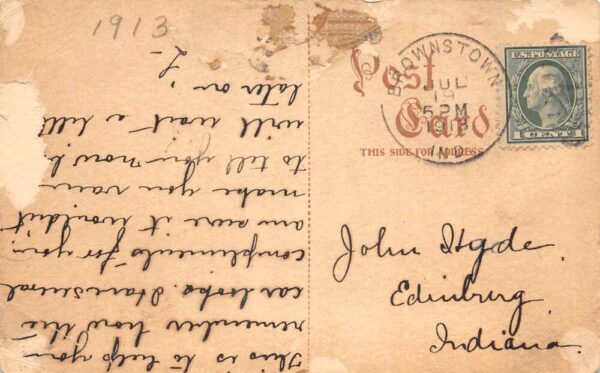 1913
Post
Card
THIS SIDE FOR ADDRESS
BROWNSTOWN
JUL
19
5 PM
1913
IND.
U.S. POSTAGE
1 CENT 1
John Hyde
Edinburg
Indiana.
This is to help you
remember how the
car looks. Have several
compliments for you
am sure it wouldn't
make you vain
to tell you now b.
will wait a till
later on, L-